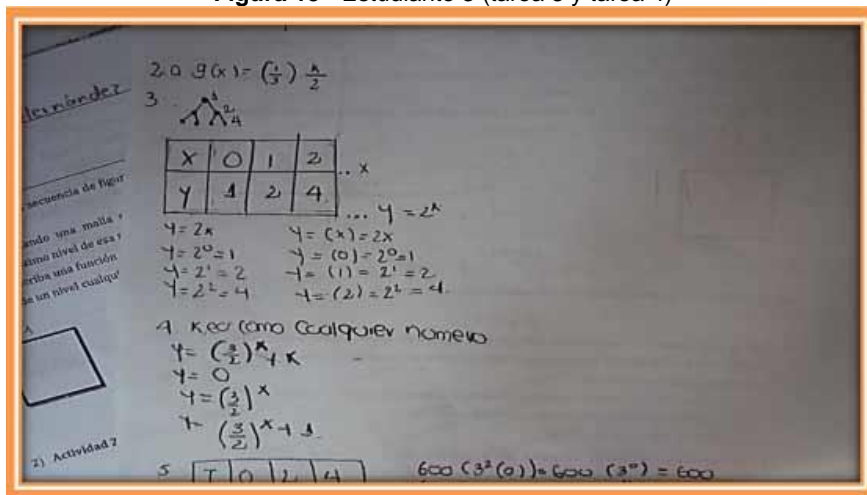 Figura 13 - Estudiante 3 (tarea 3 y tarea 4)
ernández
secuencia de figur
ando una malla
ximo nivel de esa
criba una función
de un nivel cualqu
2) Actividad 2
2.0 g(x) = (1/3) x/2
3.
1
2
4
X 0 1 2 .. x
Y 1 2 4 ... y = 2^x
y = 2x y = (x) = 2x
y = 2^0 = 1 y = (0) = 2^0 = 1
y = 2^1 = 2 y = (1) = 2^1 = 2
y = 2^2 = 4 y = (2) = 2^2 = 4
4 como Cualquier numero
y = (3/2)^x + k
y = 0
y = (3/2)^x
y = (3/2)^x + 1
5 T 0 2 4 600 (3^2(0)) = 600 (3^0) = 600